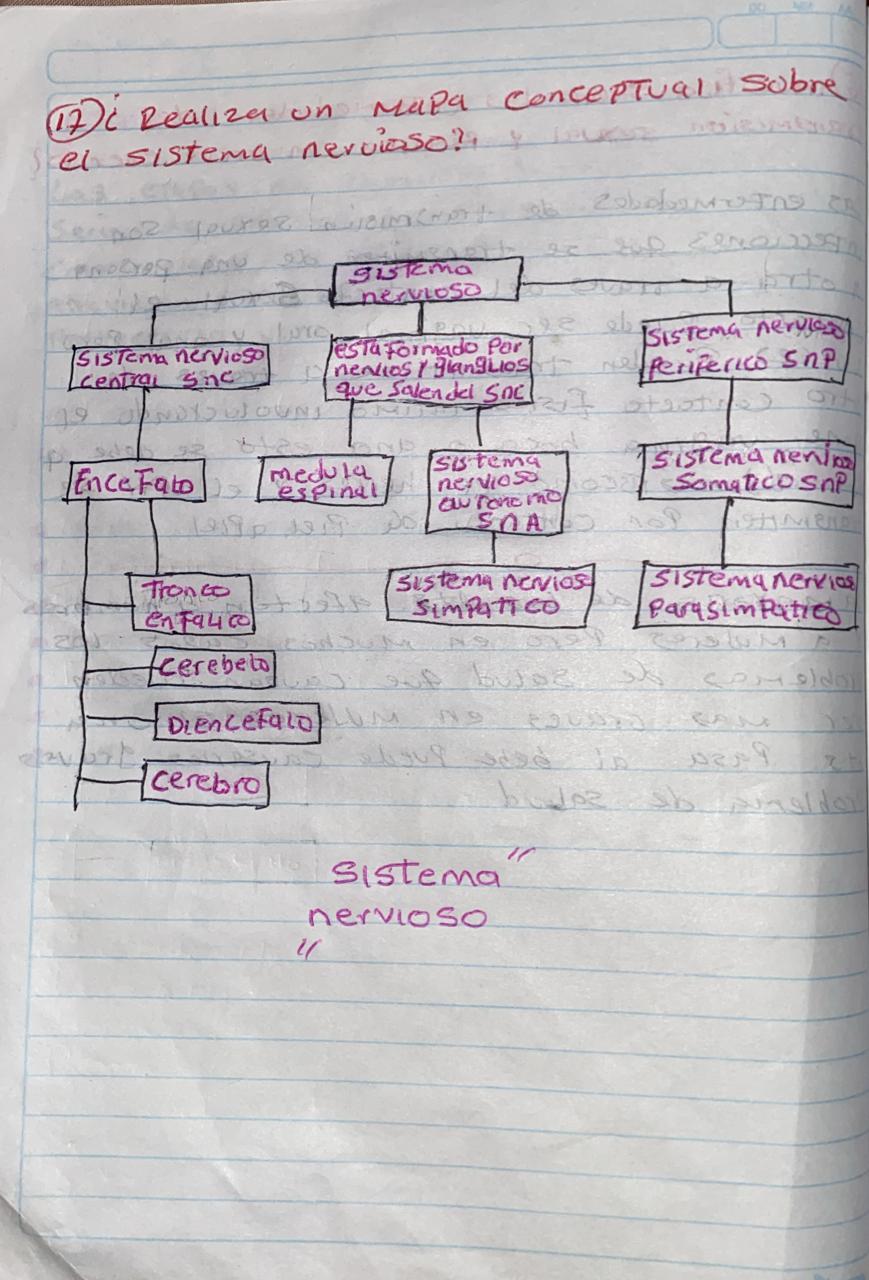 17 ¿ Realiza un mapa conceptual sobre
el sistema nervioso?
Sistema
nervioso
Sistema nervioso
central SNC
esta formado por
nervios y glanglios
que salen del SNC
Sistema nervioso
Periferico SNP
Encefalo
medula
espinal
Sistema
nervioso
autonomo
SNA
Sistema
Somatico SNP
Tronco
enfalico
Sistema nervios
Simpatico
Sistema nervios
Parasimpatico
Cerebelo
Diencefalo
Cerebro
Sistema "
nervioso
"